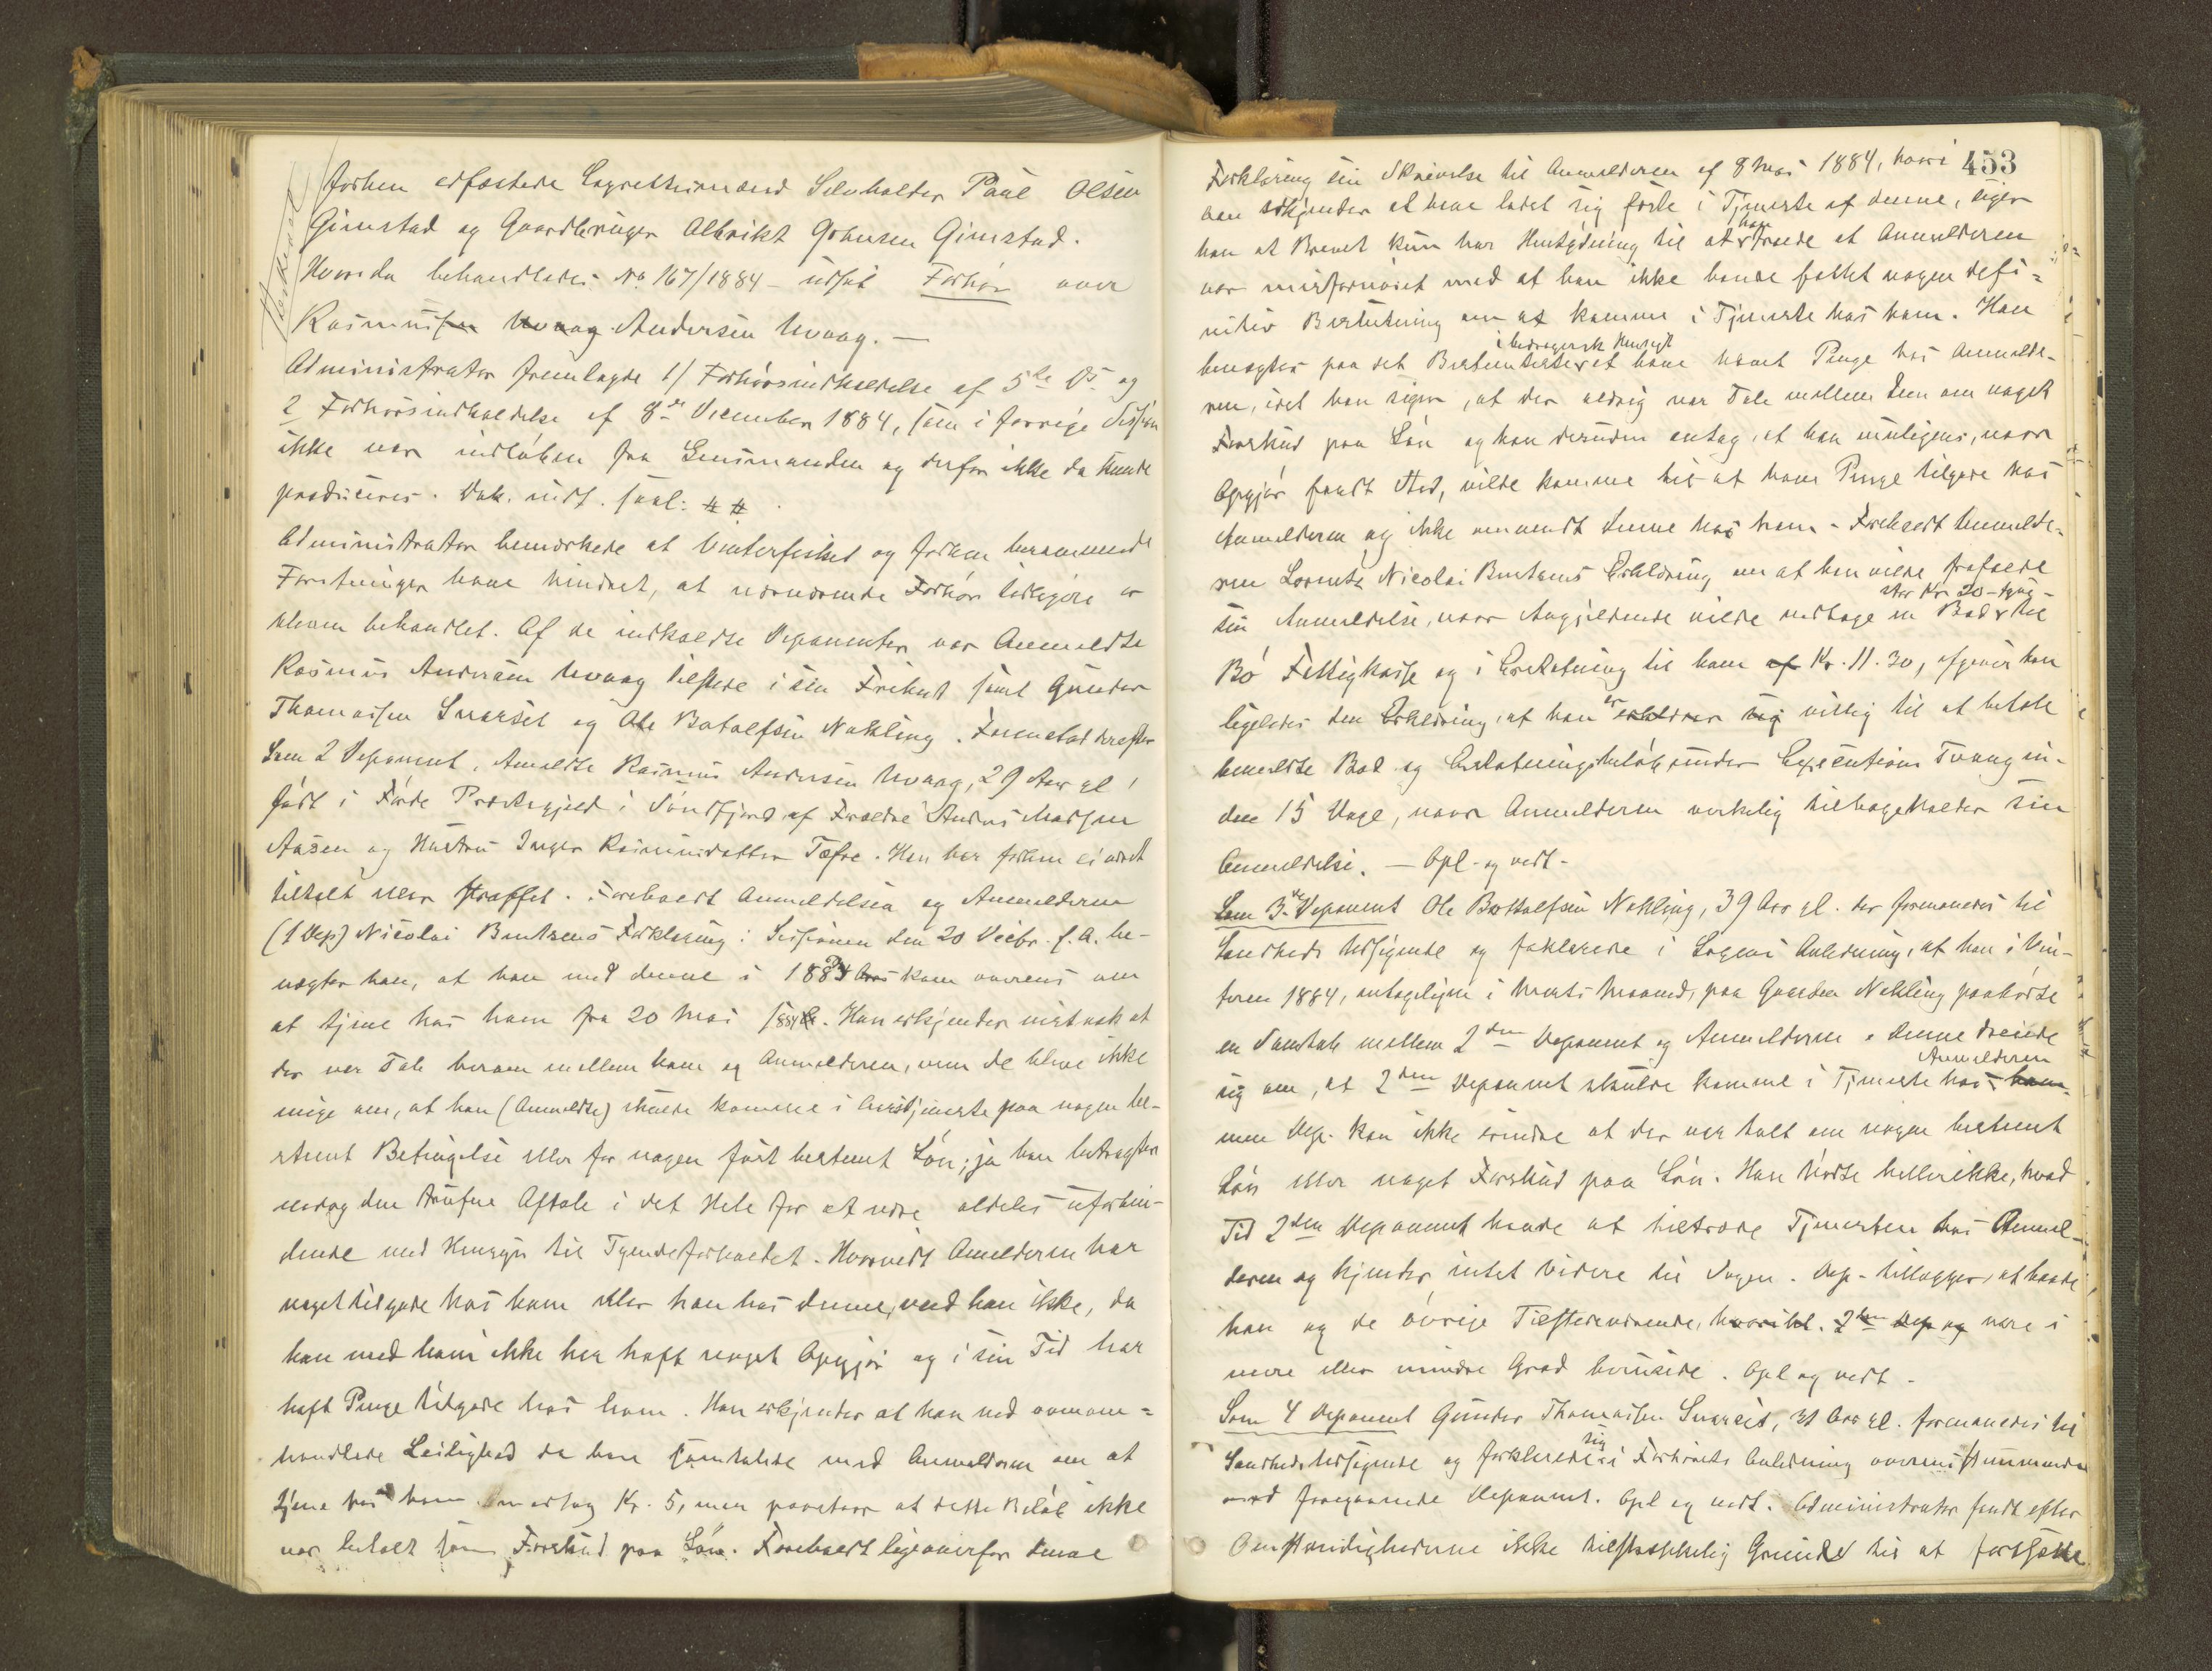 forhen edfæstede Lagrettesmænd Selveholder Paul Olsen
Gimstad og Gaardbruger Albrikt Johnsen Gimstad.
Hvorda behandledes No 167/1884 - udsat Forhør over
Rasmus Andersen Uvaag. —
Administrator fremlagde 1/ Forhørsindkaldelse af 5te Ds og
2 Forhørsindkaldelse af 8de December 1884, som i forrige Session
ikke var indløben fra Lensmanden og derfor ikke da kunde
produceres. Dok. indt. saal: # #
Administrator bemærkede at Vinterfisket og forhen berammede
Forretninger have hindret, at nærværende Forhør tidligere er
bleven behandlet. Af de indkaldte Deponenter var Anmeldte
Rasmus Andersen Uvaag tilstede i sin Frihed samt Gunder
Thomassen Snarset og Ole Botolfsen Nækling. Fremstod derefter
Som 2 Deponent, Anmeldte Rasmus Andersen Uvaag, 29 Aar gl,
født i Førde Præstegjeld i Søndfjord af Forældre Anders Madsen
Aasen og Hustru Inger Rasmusdatter Tæfre. Han har forhen ei været
tiltalt eller straffet. Foreholdt Anmeldelsen og Anmelderen
(1 Dep) Nicolai Bentzens Forklaring i Sessionen den 20 Decbr. f. A. be-
nægter han, at han med denne i 1883 kom overens om
at tjene hos ham fra 20 Mai 1884. Han erkjender vistnok at
der var Tale herom mellem ham og Anmelderen, men de bleve ikke
enige om, at han (Anmeldte) skulde komme i Aarstjeneste paa nogen be-
stemt Betingelse eller for nogen fast bestemt Løn; ja han betragter
endog den trufne Aftale i det Hele for at være aldeles uforbin-
dende med Hensyn til Tyendeforholdet. Hvorvidt Anmelderen har
noget tilgode hos ham eller han hos denne, ved han ikke, da
han med ham ikke har haft noget Opgjør og i sin Tid har
haft Penge tilgode hos ham. Han erkjender at han ved ovenom=
handlede Leilighed da han samtalede med Anmelderen om at
tjene hos ham modtog Kr. 5, men paastaar at dette Beløb ikke
var betalt som Forskud paa Løn. Foreholdt ligeoverfor denne
453
Forklaring sin Skrivelse til Anmelderen af 8 Mai 1884, hvori
han erkjender at have ladet sig fæste i Tjeneste af denne, siger
han at Brevet kun har Hentydning til at han troede at Anmelderen
var misfornøiet med at han ikke havde fattet nogen defi=
nitiv Beslutning om at komme i Tjeneste hos ham. Han
benægter paa det Bestemteste i bedragersk Hensigt at have hævet Penge hos Anmelde-
ren, idet han siger, at der aldrig var Tale mellem dem om noget
Forskud paa Løn og han desuden antog, at han muligens, naar
Opgjør fandt Sted, vilde komme til at have Penge tilgode hos
Anmelderen og ikke omvendt denne hos ham - Foreholdt Anmelde-
ren Lorentz Nicolai Bentzens Erklæring om at han vilde frafalde
sin Anmeldelse, naar Angjeldende vilde vedtage en Bod stor Kr 20 - tyve - til
Bø Fattigkasse og i Erstatning til ham af Kr. 11.30, afgiver han
ligeledes den Erklæring, at han er villig til at betale
bemeldte Bod og Erstatningsbeløb under Executions Tvang in-
den 15 Dage, naar Anmelderen virkelig tilbagekalder sin
Anmeldelse. — Opl. og vedt -
Som 3de Deponent Ole Bottolfsen Nækling, 39 Aar gl. der formanedes til
Sandheds Udsigende og forklarede i Sagens Anledning, at han i Vin-
teren 1884, antageligen i Marts Maaned, paa Gaarden Nækling paahørte
en Samtale mellem 2den Deponent og Anmelderen. Denne dreiede
sig om, at 2den Deponent skulde komme i Tjeneste hos Anmelderen
men Dep. kan ikke erindre at der var talt om nogen bestemt
Løn eller noget Forskud paa Løn. Han hørte heller ikke, hvad
Tid 2den Deponent havde at tiltræde Tjenesten hos Anmel-
deren og kjender intet videre til Sagen. Dep. tillægger, at baade
han og de øvrige Tilstedeværende, vare i
mere eller mindre Grad berusede. Opl og vedt -
Som 4 Deponent Gunder Thomassen Snarset, 31 Aar gl. formanedes til
Sandheds Udsigende og forklarede sig i Forhørets Anledning overensstemmende
med foregaaende Deponent. Opl og vedt. Administrator fandt efter
Omstændighederne ikke tilstrækkelig Grund til at fortsætte